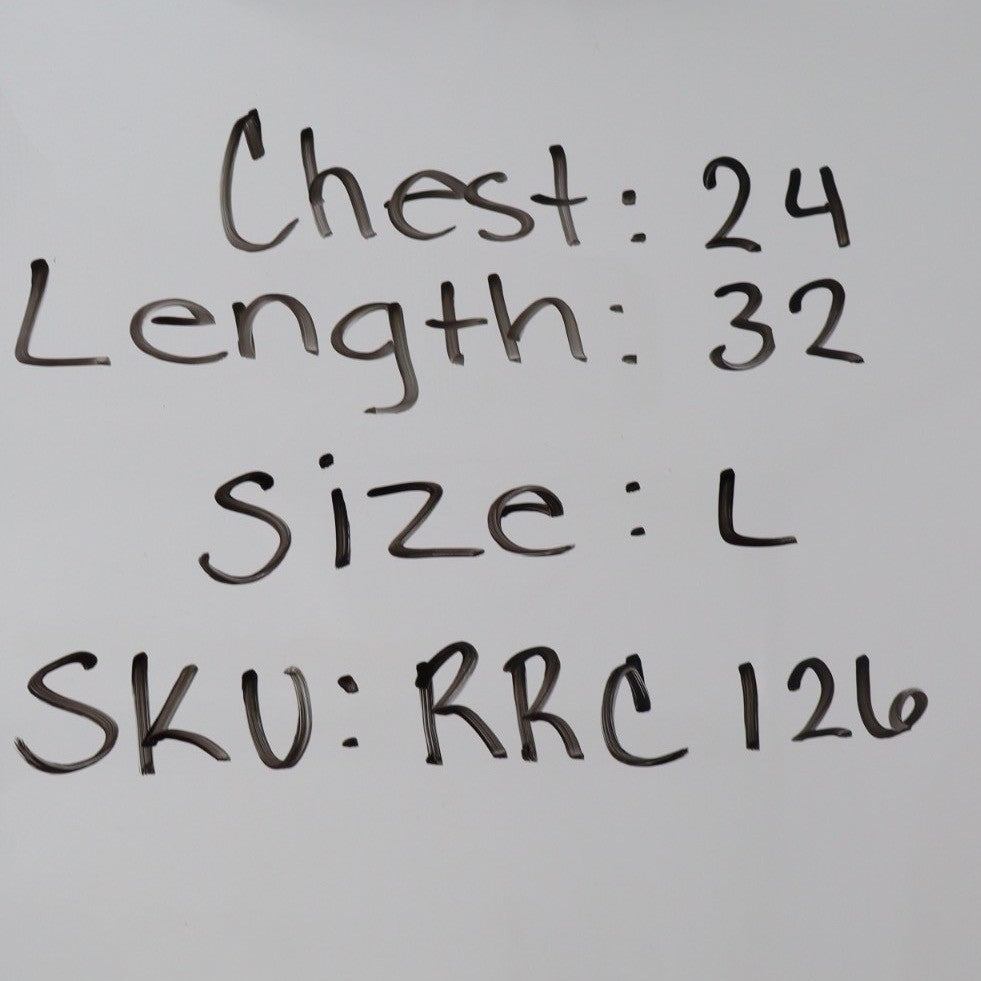 Chest: 24
Length: 32
Size: L
SKU: RRC 126